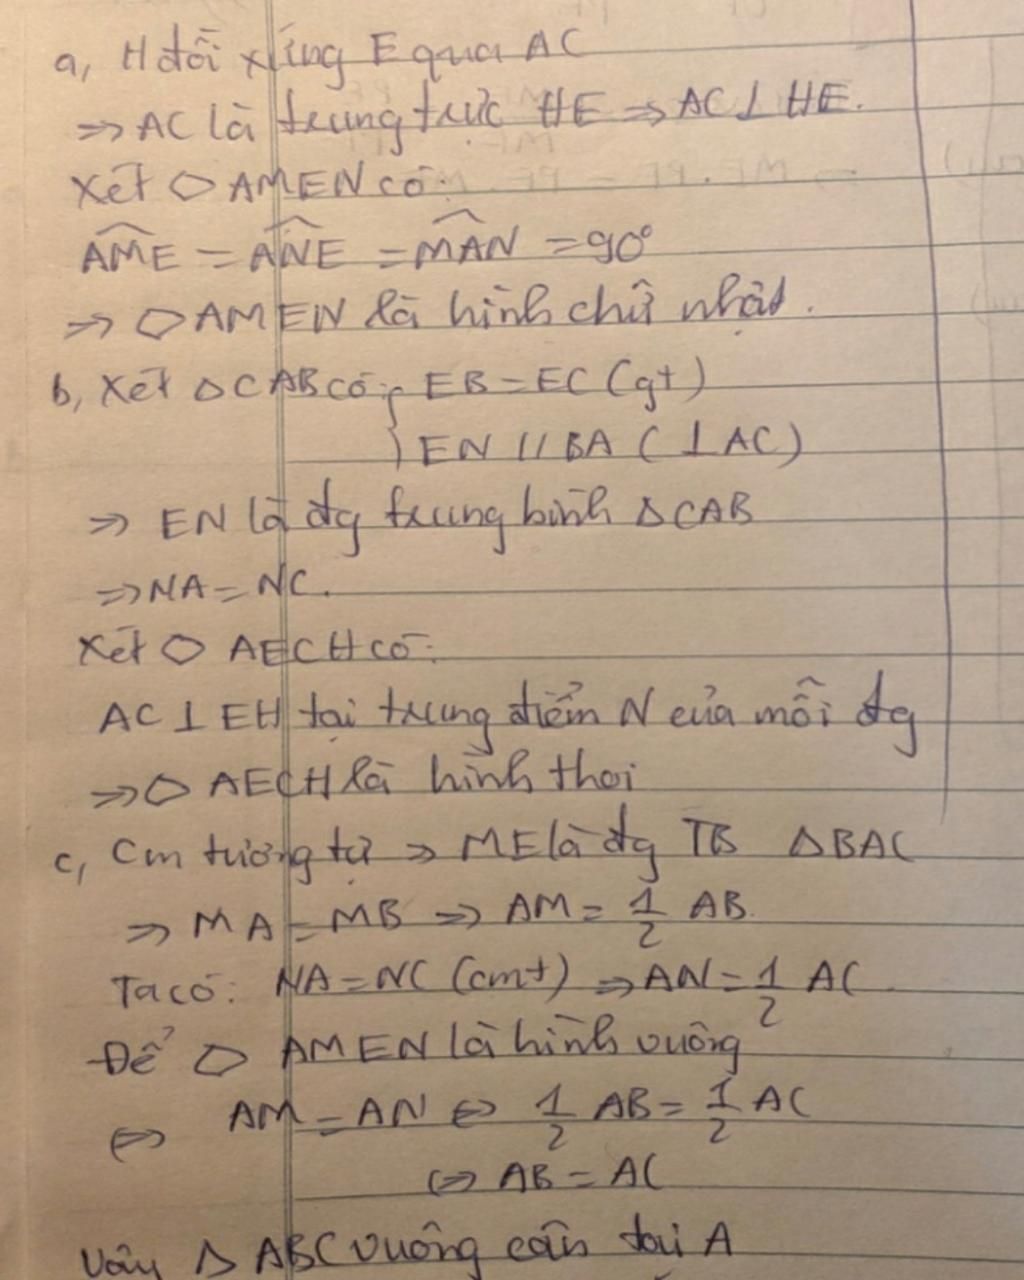 a, H đối xứng E qua AC
=> AC là trung trực HE => AC ⊥ HE.
Xét ◇ AMEN có:
AME = ANE = MAN = 90°
=> ◇ AMEN là hình chữ nhật.
b, Xét △CAB có: { EB = EC (gt)
EN // BA (⊥ AC)
=> EN là đg trung bình △CAB
=> NA = NC.
Xét ◇ AECH có:
AC ⊥ EH tại trung điểm N của mỗi đg
=> ◇ AECH là hình thoi
c, Cm tương tự => ME là đg TB △BAC
=> MA = MB => AM = 1/2 AB.
Ta có: NA = NC (cmt) => AN = 1/2 AC
Để ◇ AMEN là hình vuông
<=> AM = AN <=> 1/2 AB = 1/2 AC
<=> AB = AC
Vậy △ ABC vuông cân tại A